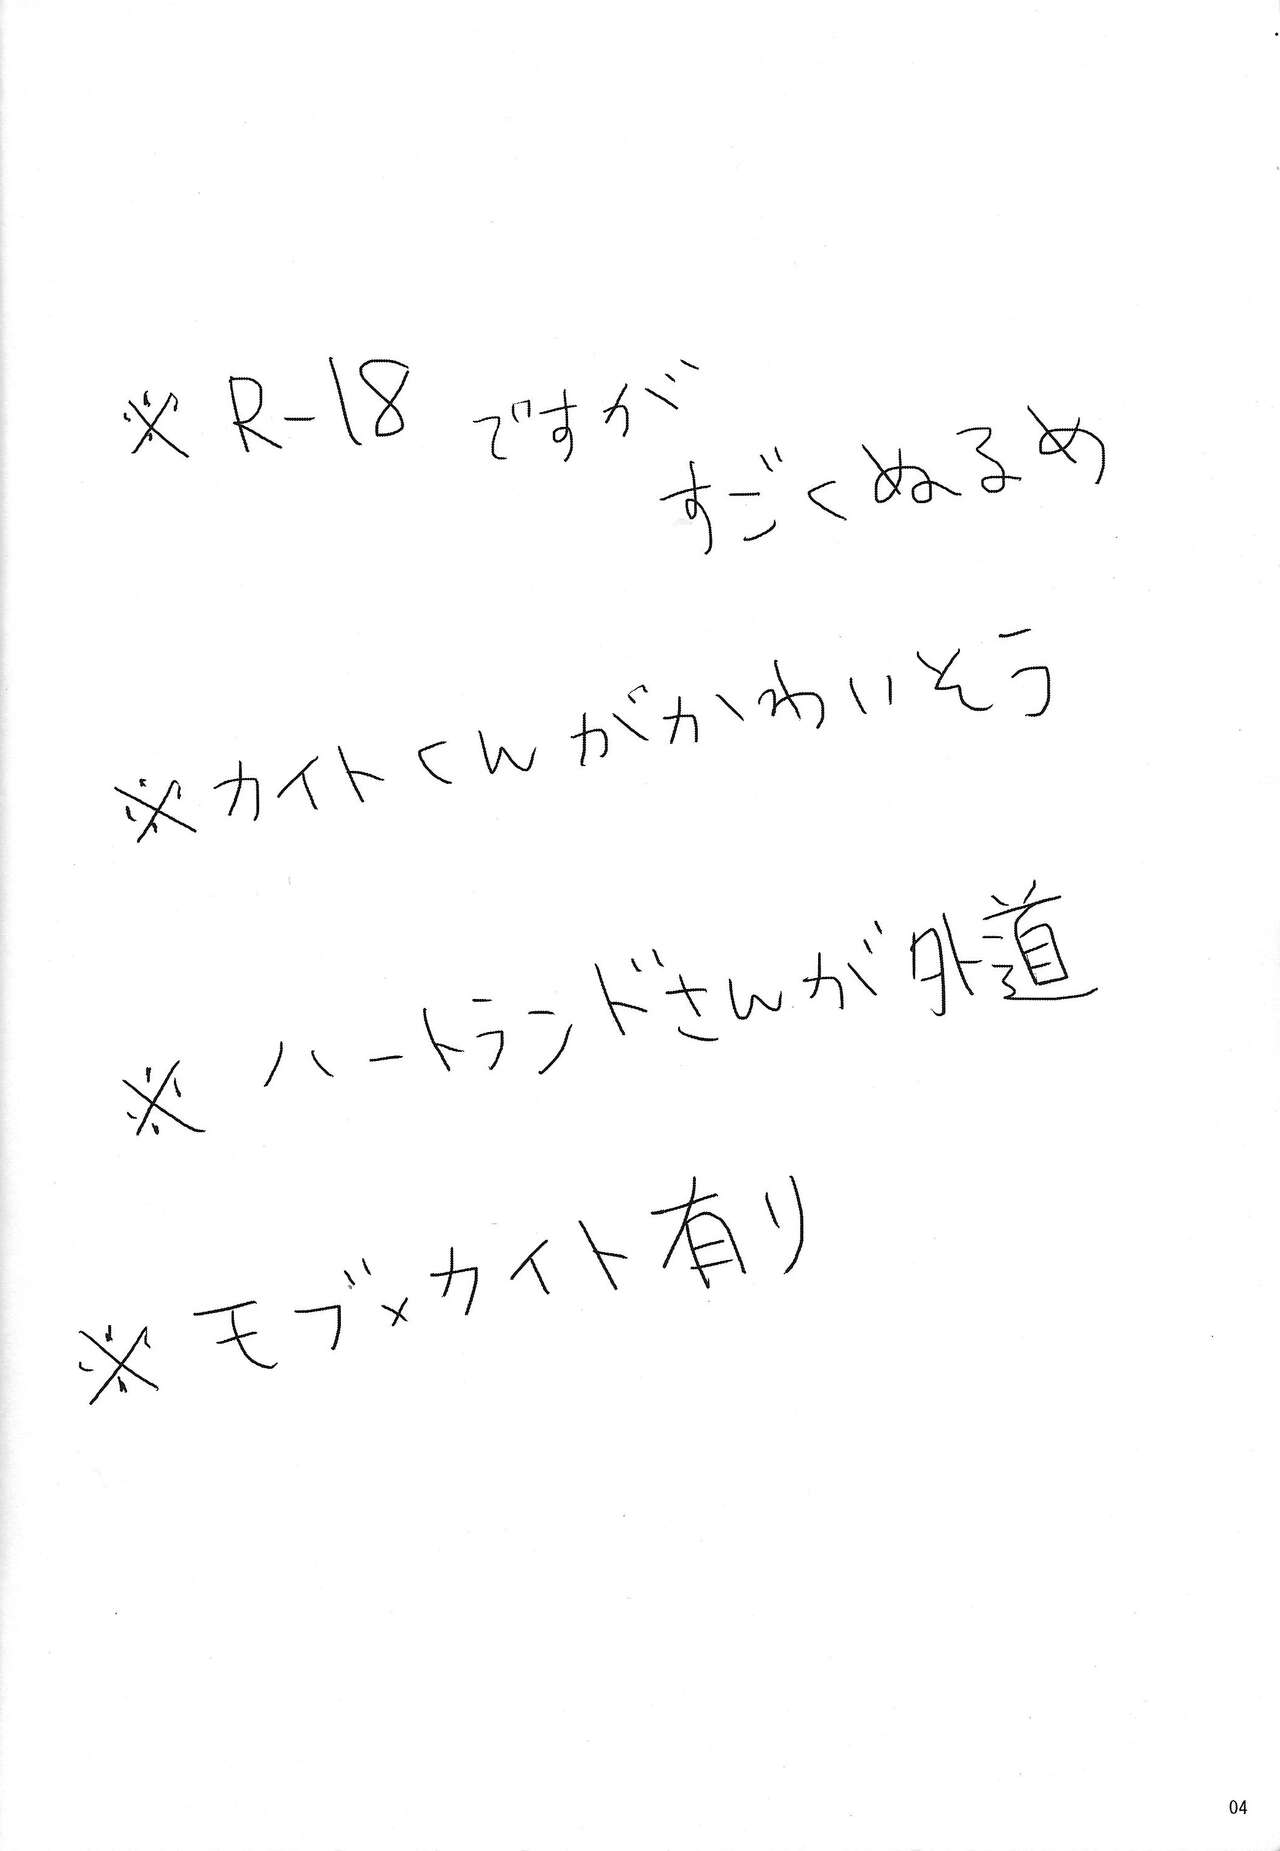 ※R-18ですが
すごくぬるめ
※カイトくんがかわいそう
※ハートランドさんが外道
※モブ×カイト有り
04